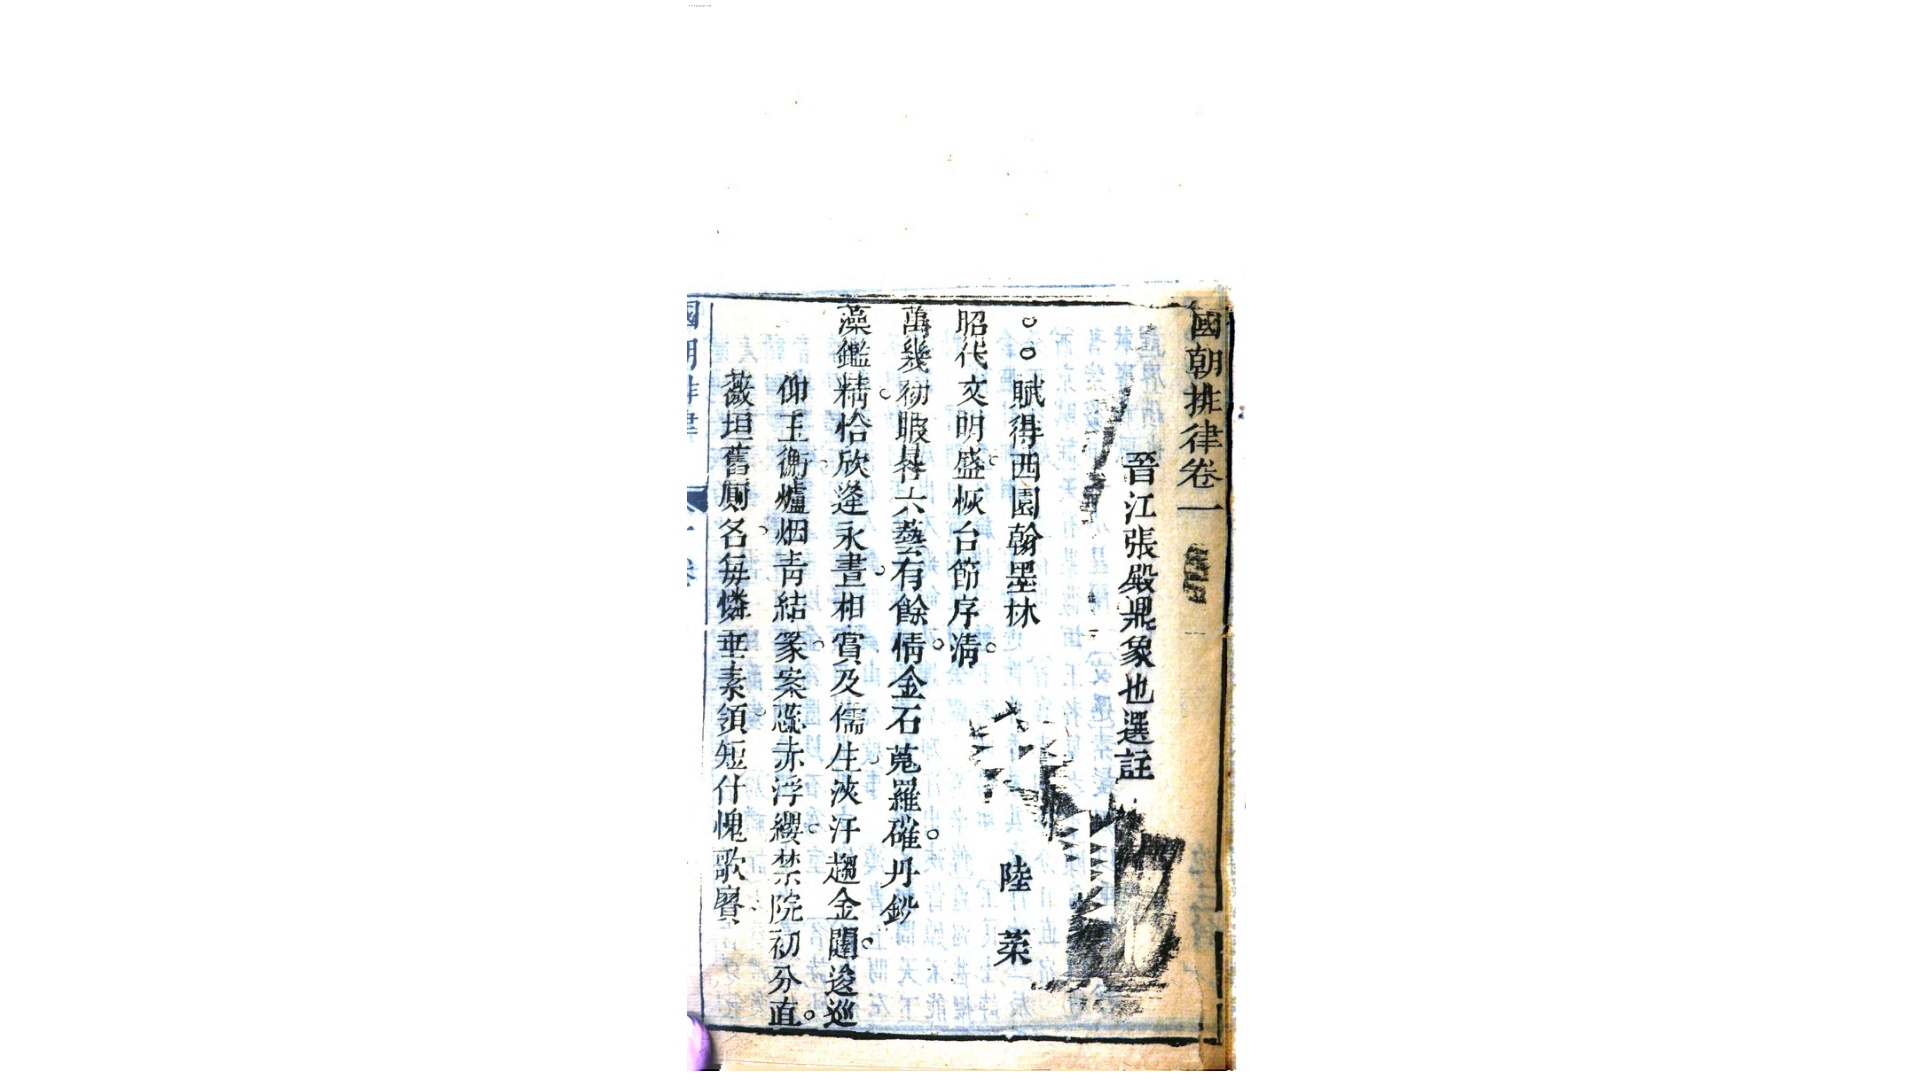 國朝排律卷一
晉江張殿鼎象也選註
賦得西園翰墨林
陸 葇
昭代文明盛恢台節序淸
萬幾初暇晷六藝有餘情金石蒐羅確丹鉛
藻鑑精恰欣逢永晝相賞及儒生浹汗趨金闥逡巡
仰玉衡爐烟靑結篆案 赤浮纓禁院初分直
薇垣舊厠名每憐垂素領短什愧歌賡
國朝排律 卷一